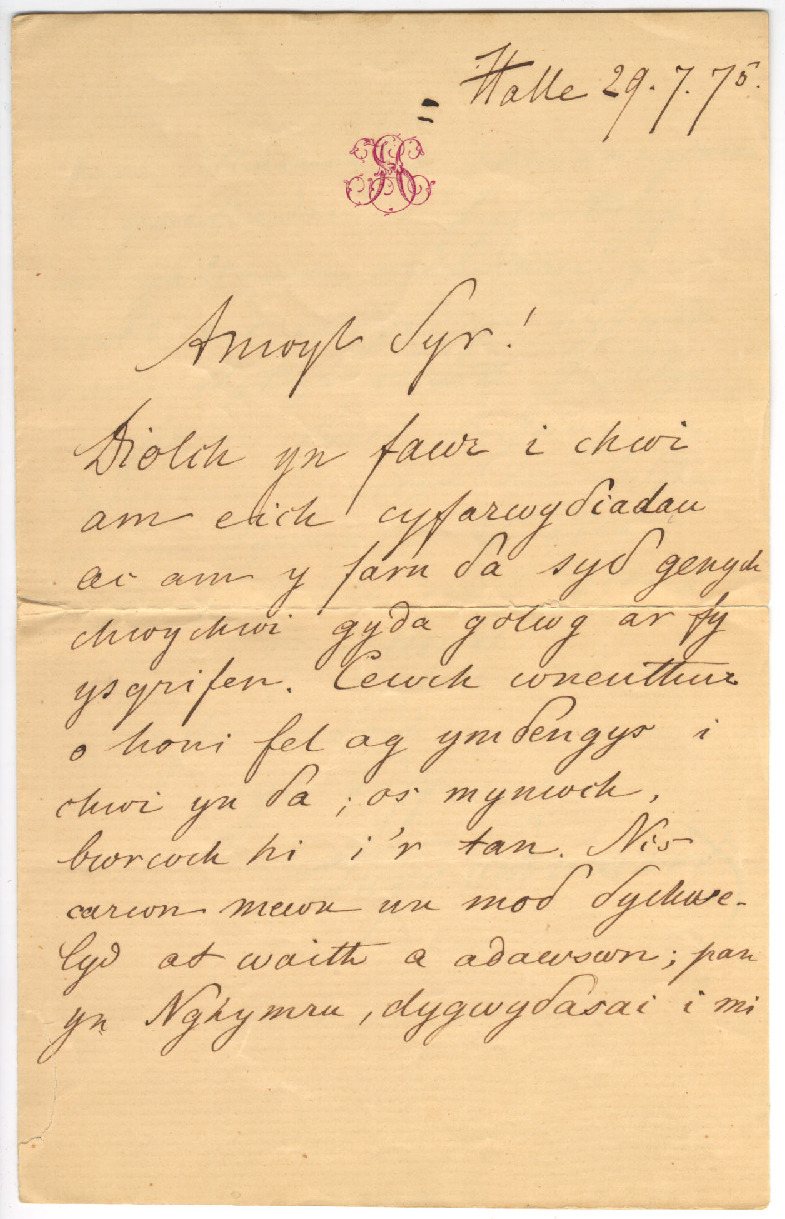 Halle 29.7.75.
Anwyl Syr!
Diolch yn fawr i chwi
am eich cyfarwyδiadau
ac am y farn δa syδ genych
chwychwi gyda golwg ar fy
ysgrifen. Cewch wneuthur
o honi fel ag ymδengys i
chwi yn δa; os mynwch,
bwrcwch hi i'r tan. Nis
carwn mewn un moδ δychwe-
lyd at waith a adawswn; pan
yn Nghymru, dygwyδasai i mi